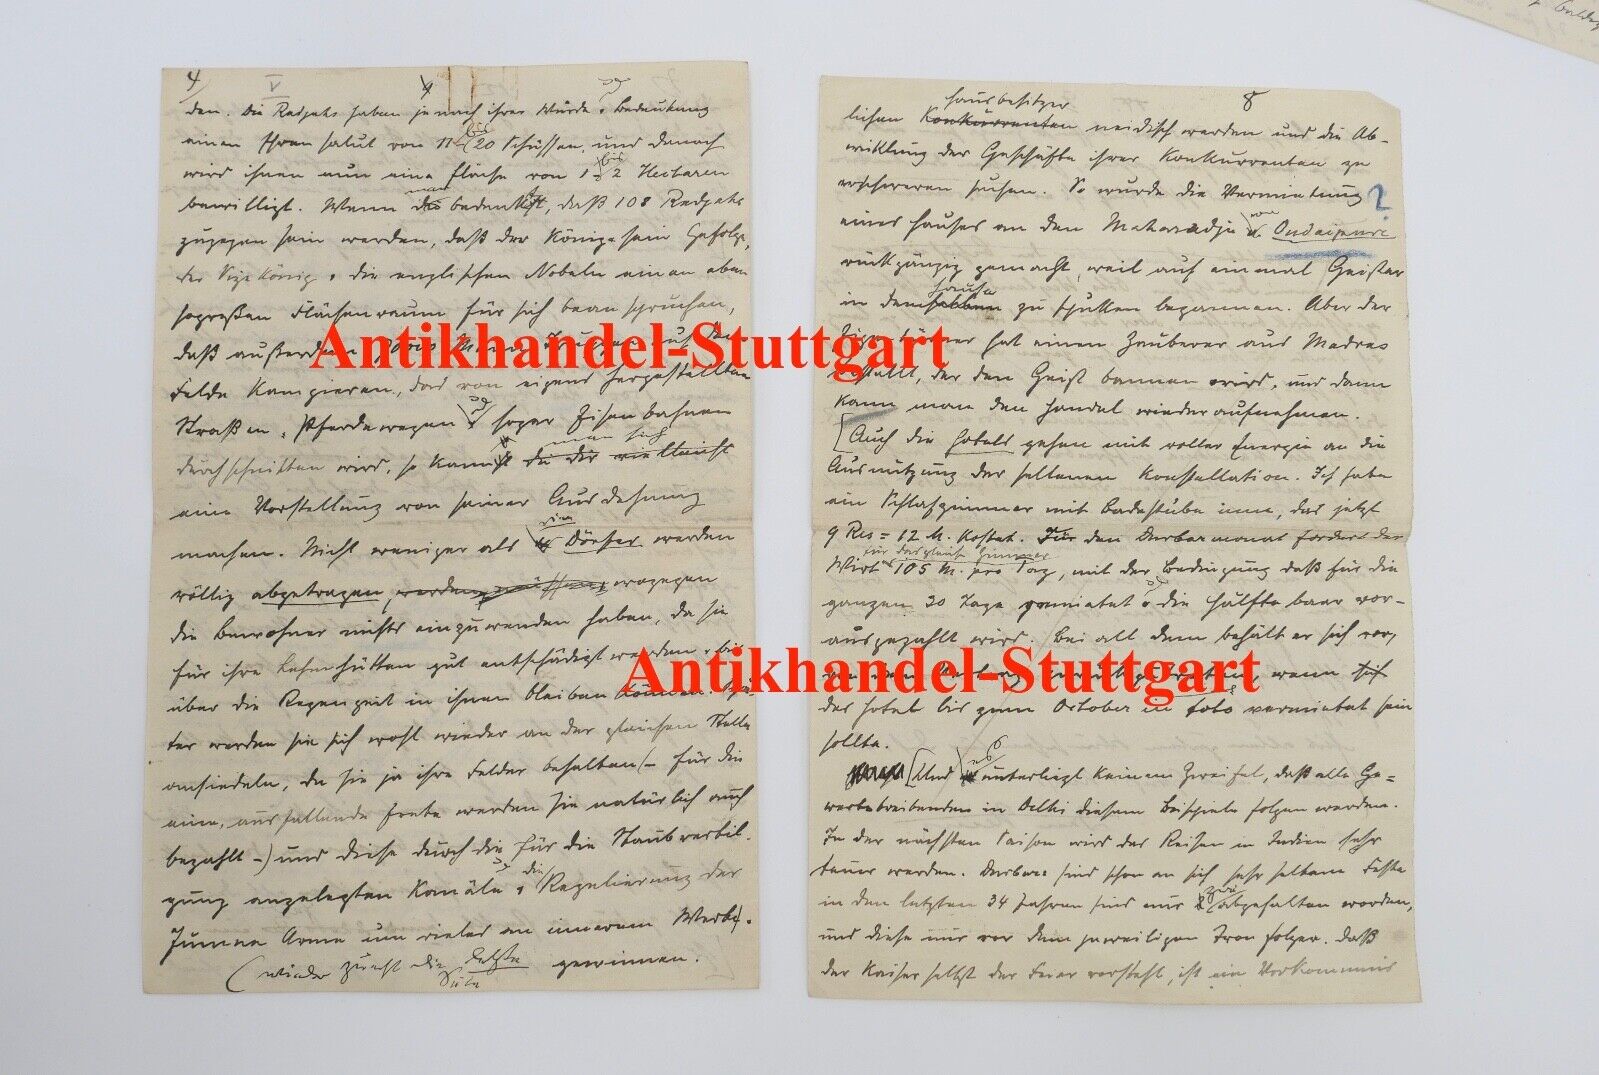 4
V
den. Die Redjahs haben je nach ihrer Würde u. Bedeutung
einen Ehrensalut von 11 bis 20 Schüssen, und danach
wird ihnen nun eine Fläche von 1 bis 2 Hectaren
bewilligt. Wenn man bedenkt, daß 108 Redjahs
zugegen sein werden, daß der König sein Gefolge,
der Vizekönig u. die englischen Nobeln einen eben
so großen Flächenraum für sich beanspruchen,
daß außerdem Mann Truppen auf dem
Felde kampieren, das von eigens hergestellten
Straßen, Pferdewegen und sogar Eisenbahnen
durchschnitten wird, so kann man sich
eine Vorstellung von seiner Ausdehnung
machen. Nicht weniger als Dörfer werden
völlig abgetragen, wogegen
die Bewohner nichts einzuwenden haben, da sie
für ihre Lehmhütten gut entschädigt werden u. bis
über die Regenzeit in ihnen bleiben können. Spä-
ter werden sie sich wohl wieder an der gleichen Stelle
ansiedeln, da sie ja ihre Felder behalten (- für die
eine, ausfallende Ernte werden sie natürlich auch
bezahlt -) und diese durch die für die Staubvertil-
gung angelegten Kanäle u. die Regulierung der
Jumna Arme um vieles an innerem Wert
(wieder gewinnen.
8
hausbesitzer
lichen Konkurrenten neidisch werden und die Ab-
wicklung der Geschäfte ihrer Konkurrenten zu
erschweren suchen. So wurde die Vermietung ?
eines Hauses an den Maharadja von Oudaipure
rückgängig gemacht, weil auf einmal Geister
in dem Hause zu spuken begannen. Aber der
Eigentümer hat einen Zauberer aus Madras
bestellt, der den Geist bannen wird, und dann
kann man den Handel wieder aufnehmen.
[Auch die Hotels gehen mit voller Energie an die
Ausnützung der seltenen Konstellation. Ich habe
ein Schlafzimmer mit Badestube inne, das jetzt
9 Res = 12 M. kostet. Für den Durbarmonat fordert der
Wirt für das gleiche Zimmer 105 M. pro Tag, mit der Bedingung daß für die
ganzen 30 Tage gemietet u. die Hälfte baar vor-
ausgezahlt wird. Bei all dem behält er sich vor,
von dem Vertrag zurückzutreten, wenn
das Hotel bis zum October in toto vermietet sein
sollte.
[Und es unterliegt keinem Zweifel, daß alle Ge-
werbetreibenden in Delhi diesem Beispiele folgen werden.
In der nächsten Saison wird das Reisen in Indien sehr
teuer werden. Durbars sind schon an sich sehr seltene Feste
in den letzten 34 Jahren sind nur zwei abgehalten worden,
und diese nur vor dem jeweiligen Tronfolger. Daß
der Kaiser selbst der Feier vorsteht, ist ein Vorkommnis
Antikhandel-Stuttgart
Antikhandel-Stuttgart